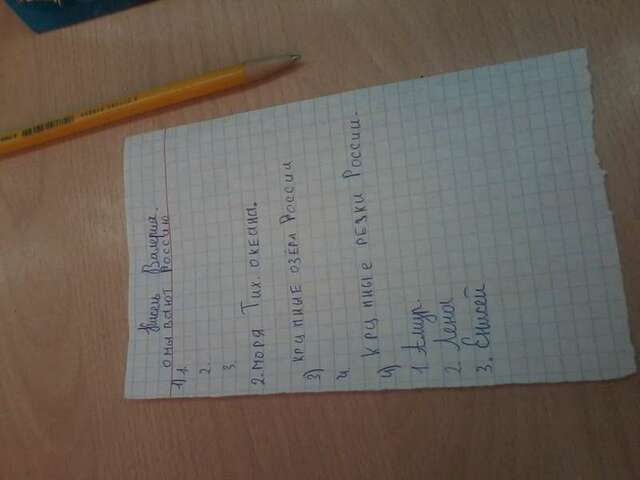 Кисель Валерия.
омывают Россию
1) 1.
2.
3.
2. моря Тих. океана.
крупные озёра России
3)
ч.
крупные резки России.
4)
1. Амур.
2. Лена
3. Енисей